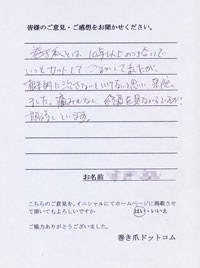 皆様のご意見・ご感想をお聞かせください。
巻き爪とは、10年以上のつき合いで
いつもカットして ごまかしてましたが、
根本的に治さないといけないと思い 来院
しました。痛みもなく 経過を見ながらですが
期待しています。
お名前
こちらのご意見を、イニシャルにてホームページに掲載させ
て頂いてもよろしいですか
はい・いいえ
ご協力ありがとうございました。
巻き爪ドットコム